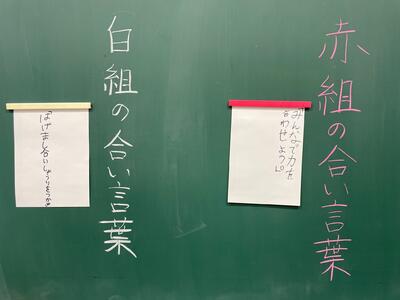 赤組の合い言葉
「みんなで力を
合わせよう」
白組の合い言葉
「はげまし合いしょうりをつかめ